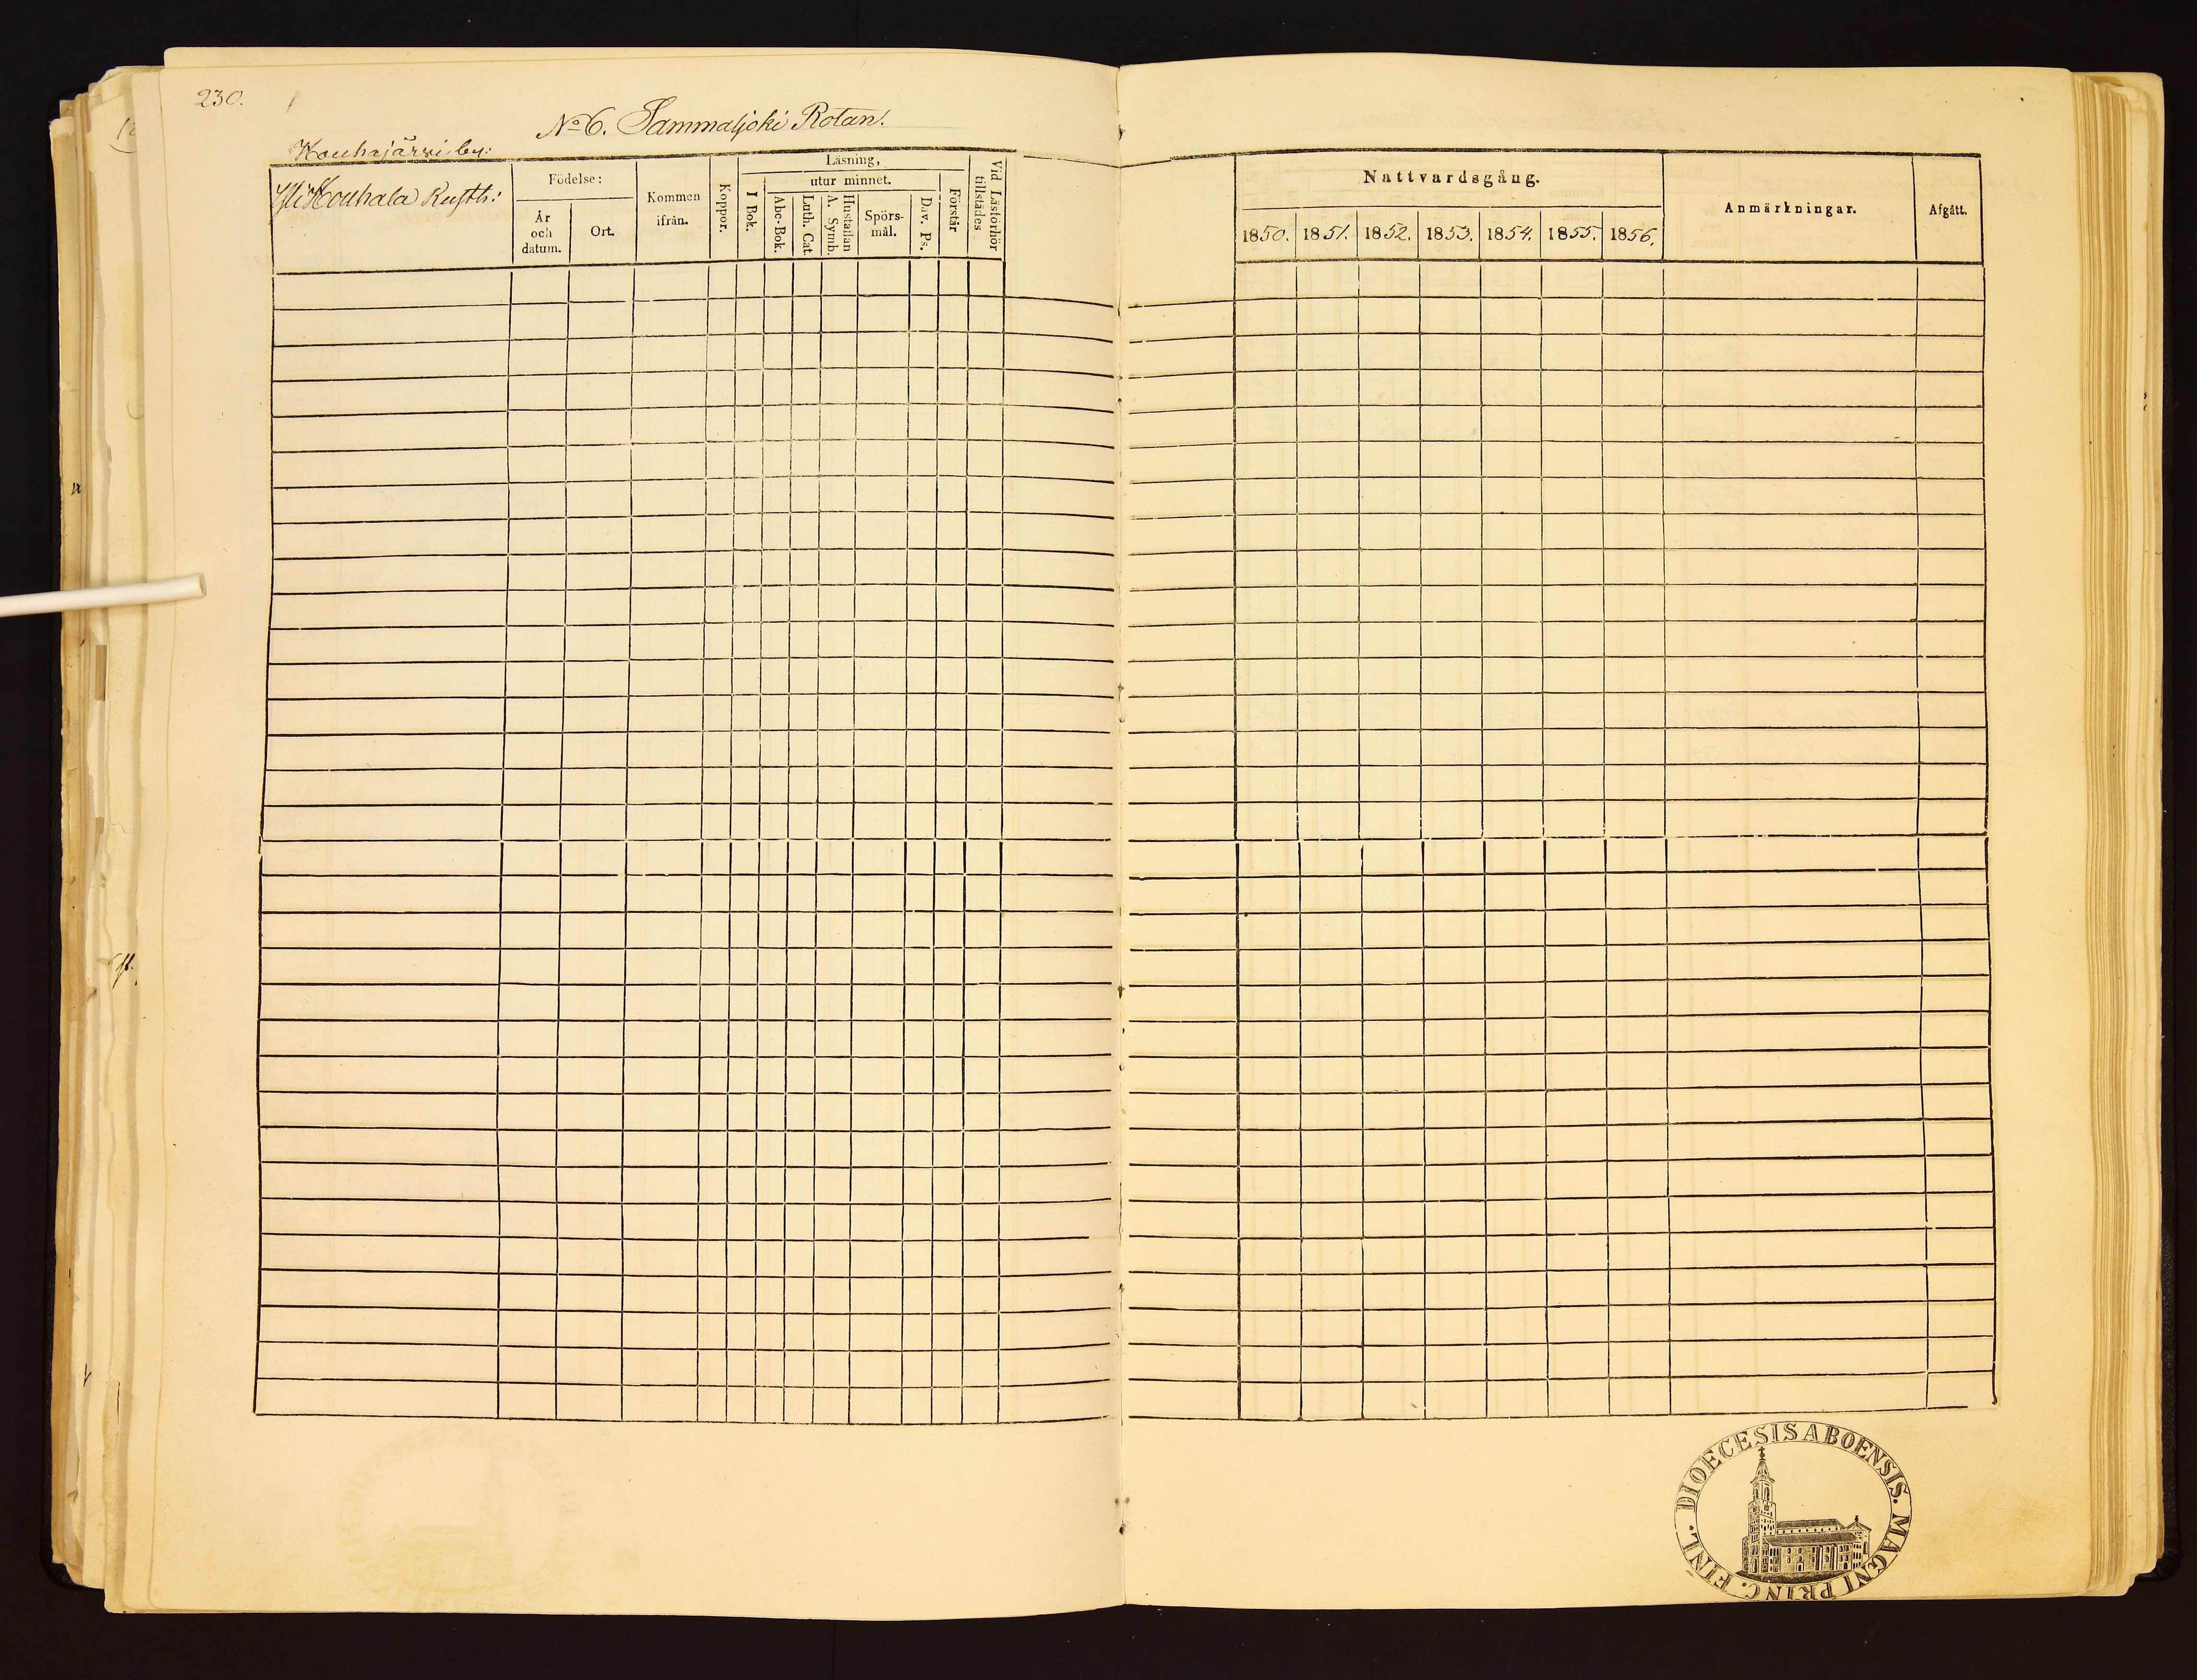 230.
No 6. Sammaljoki Rotan.
Kouhajärvi by:
Yli Kouhala Rusth:
Födelse:
År och datum.
Ort.
Kommen ifrån.
Koppor.
Läsning,
utur minnet.
I Bok.
Abc-Bok.
Luth. Cat.
Hustaflan
A. Symb.
Spörs-
mål.
Dav. Ps.
Förstår
Vid Läsförhör
tillstädes
Nattvardsgång.
1850. 1851. 1852. 1853. 1854. 1855. 1856.
Anmärkningar.
Afgått.
DIOECESIS ABOENSIS. MAGNI PRINC. FINL.